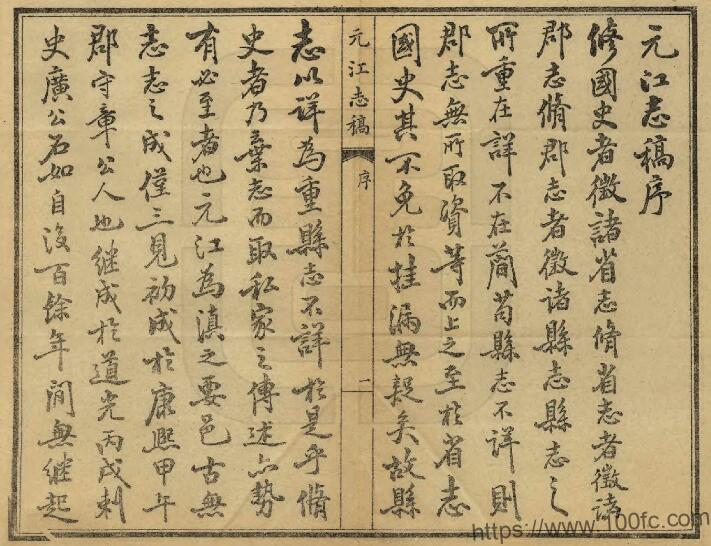 元江志稿序
修國史者徵諸省志脩省志者徵諸
郡志脩郡志者徵諸縣志縣志之
所重在詳不在簡苟縣志不詳則
郡志無所取資等而上之至於省志
國史其不免於挂漏無疑矣故縣
元江志稿
序
一
志以詳為重縣志不詳於是乎脩
史者乃棄志而取私家之傳述亦勢
有必至者也元江為滇之要邑古無
志志之成僅三見初成於康熙甲午
郡守章公人也継成於道光丙戌刺
史廣公石如自後百餘年間無継起
https://www.100fc.com